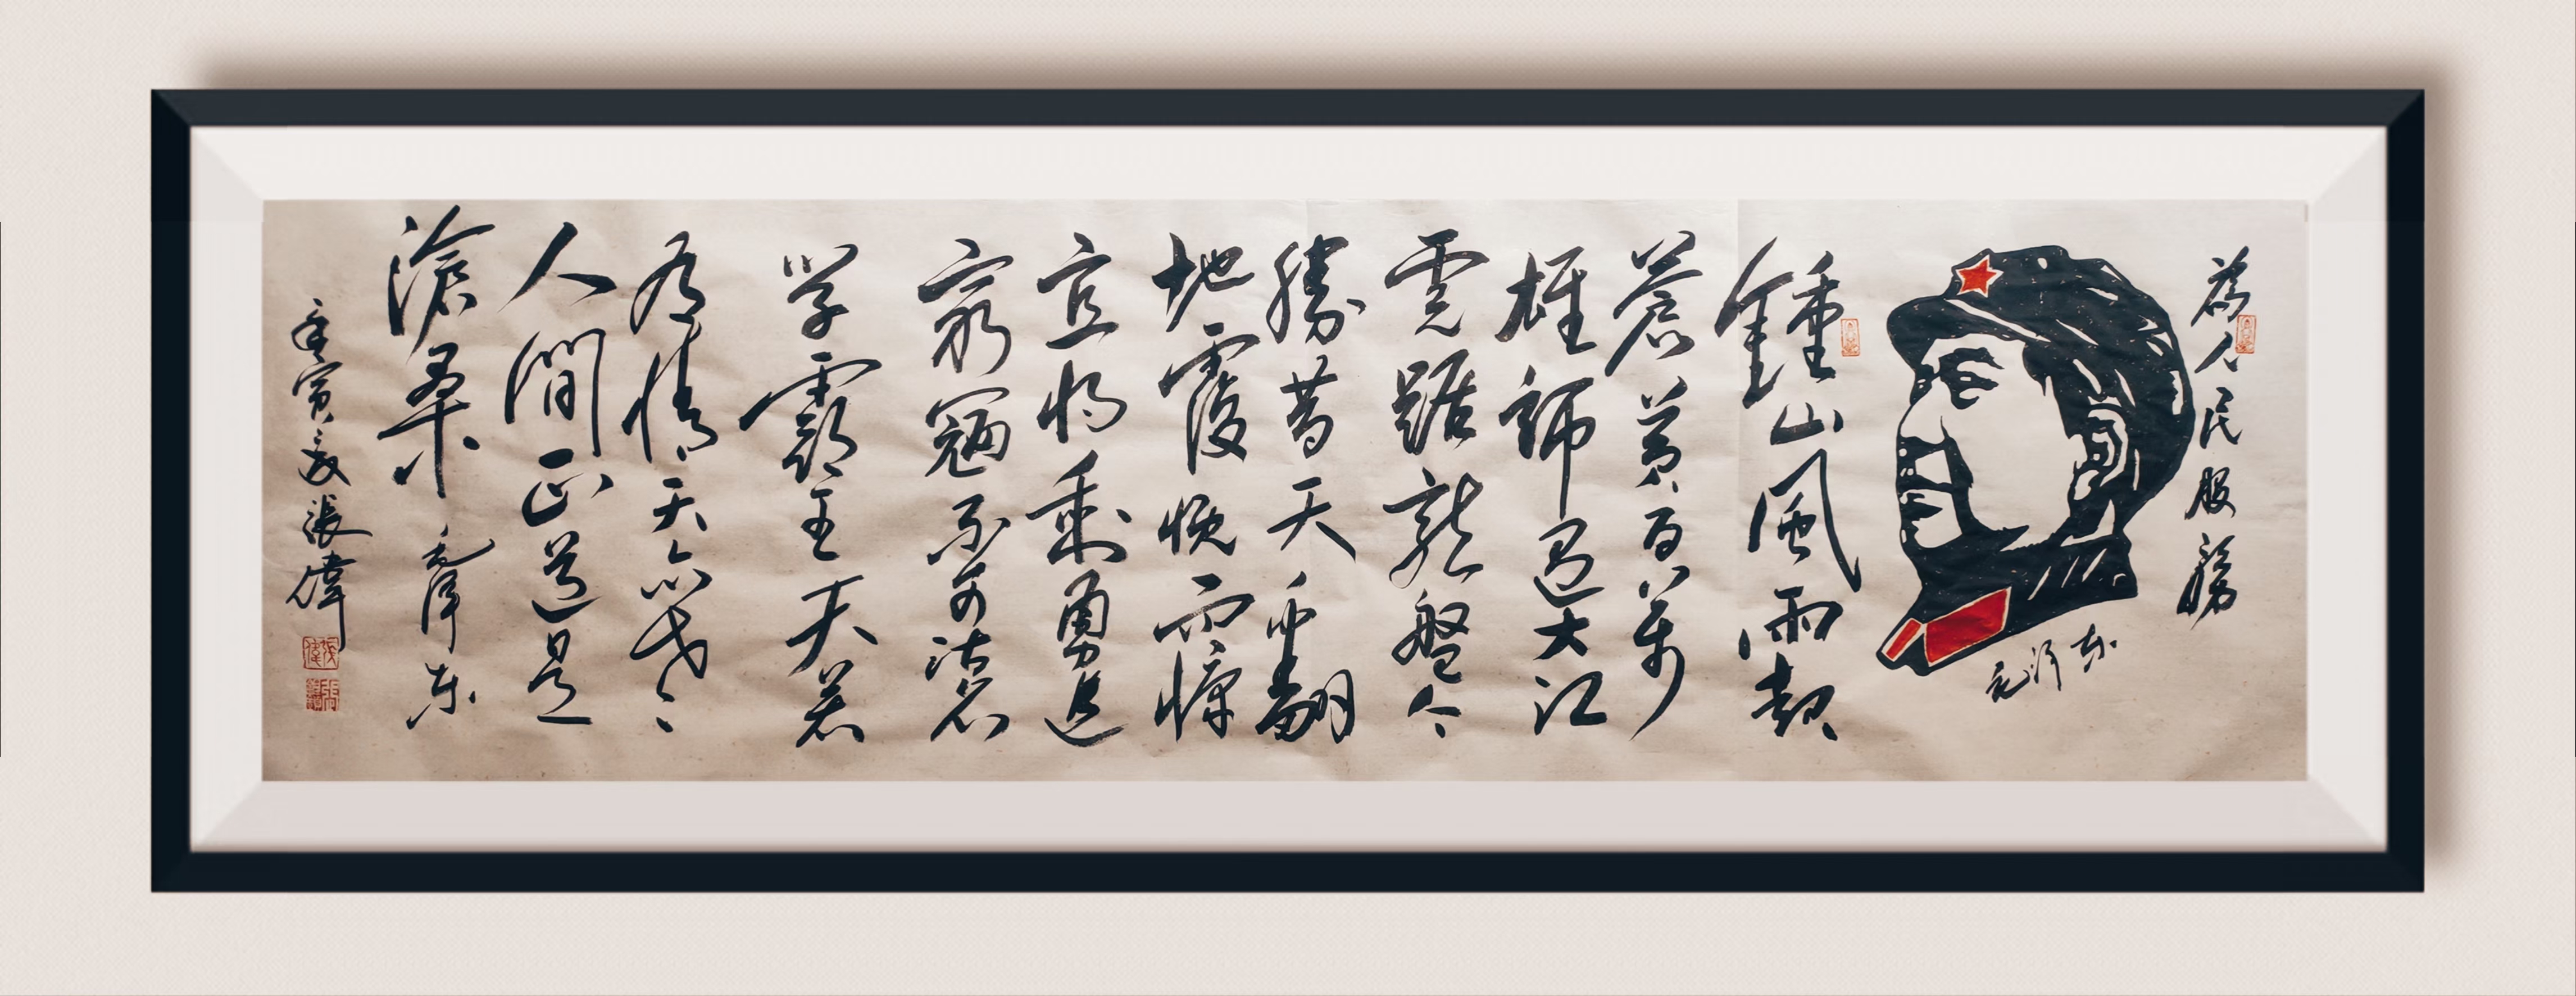 為人民服務
毛泽东
鍾山風雨起
蒼黃百萬
雄師過大江
虎踞龍盤今
勝昔天翻
地覆慨而慷
宜將剩勇追
窮寇不可沽名
学霸王天若
有情天亦老
人間正道是
滄桑 毛澤东
庚寅夏張偉